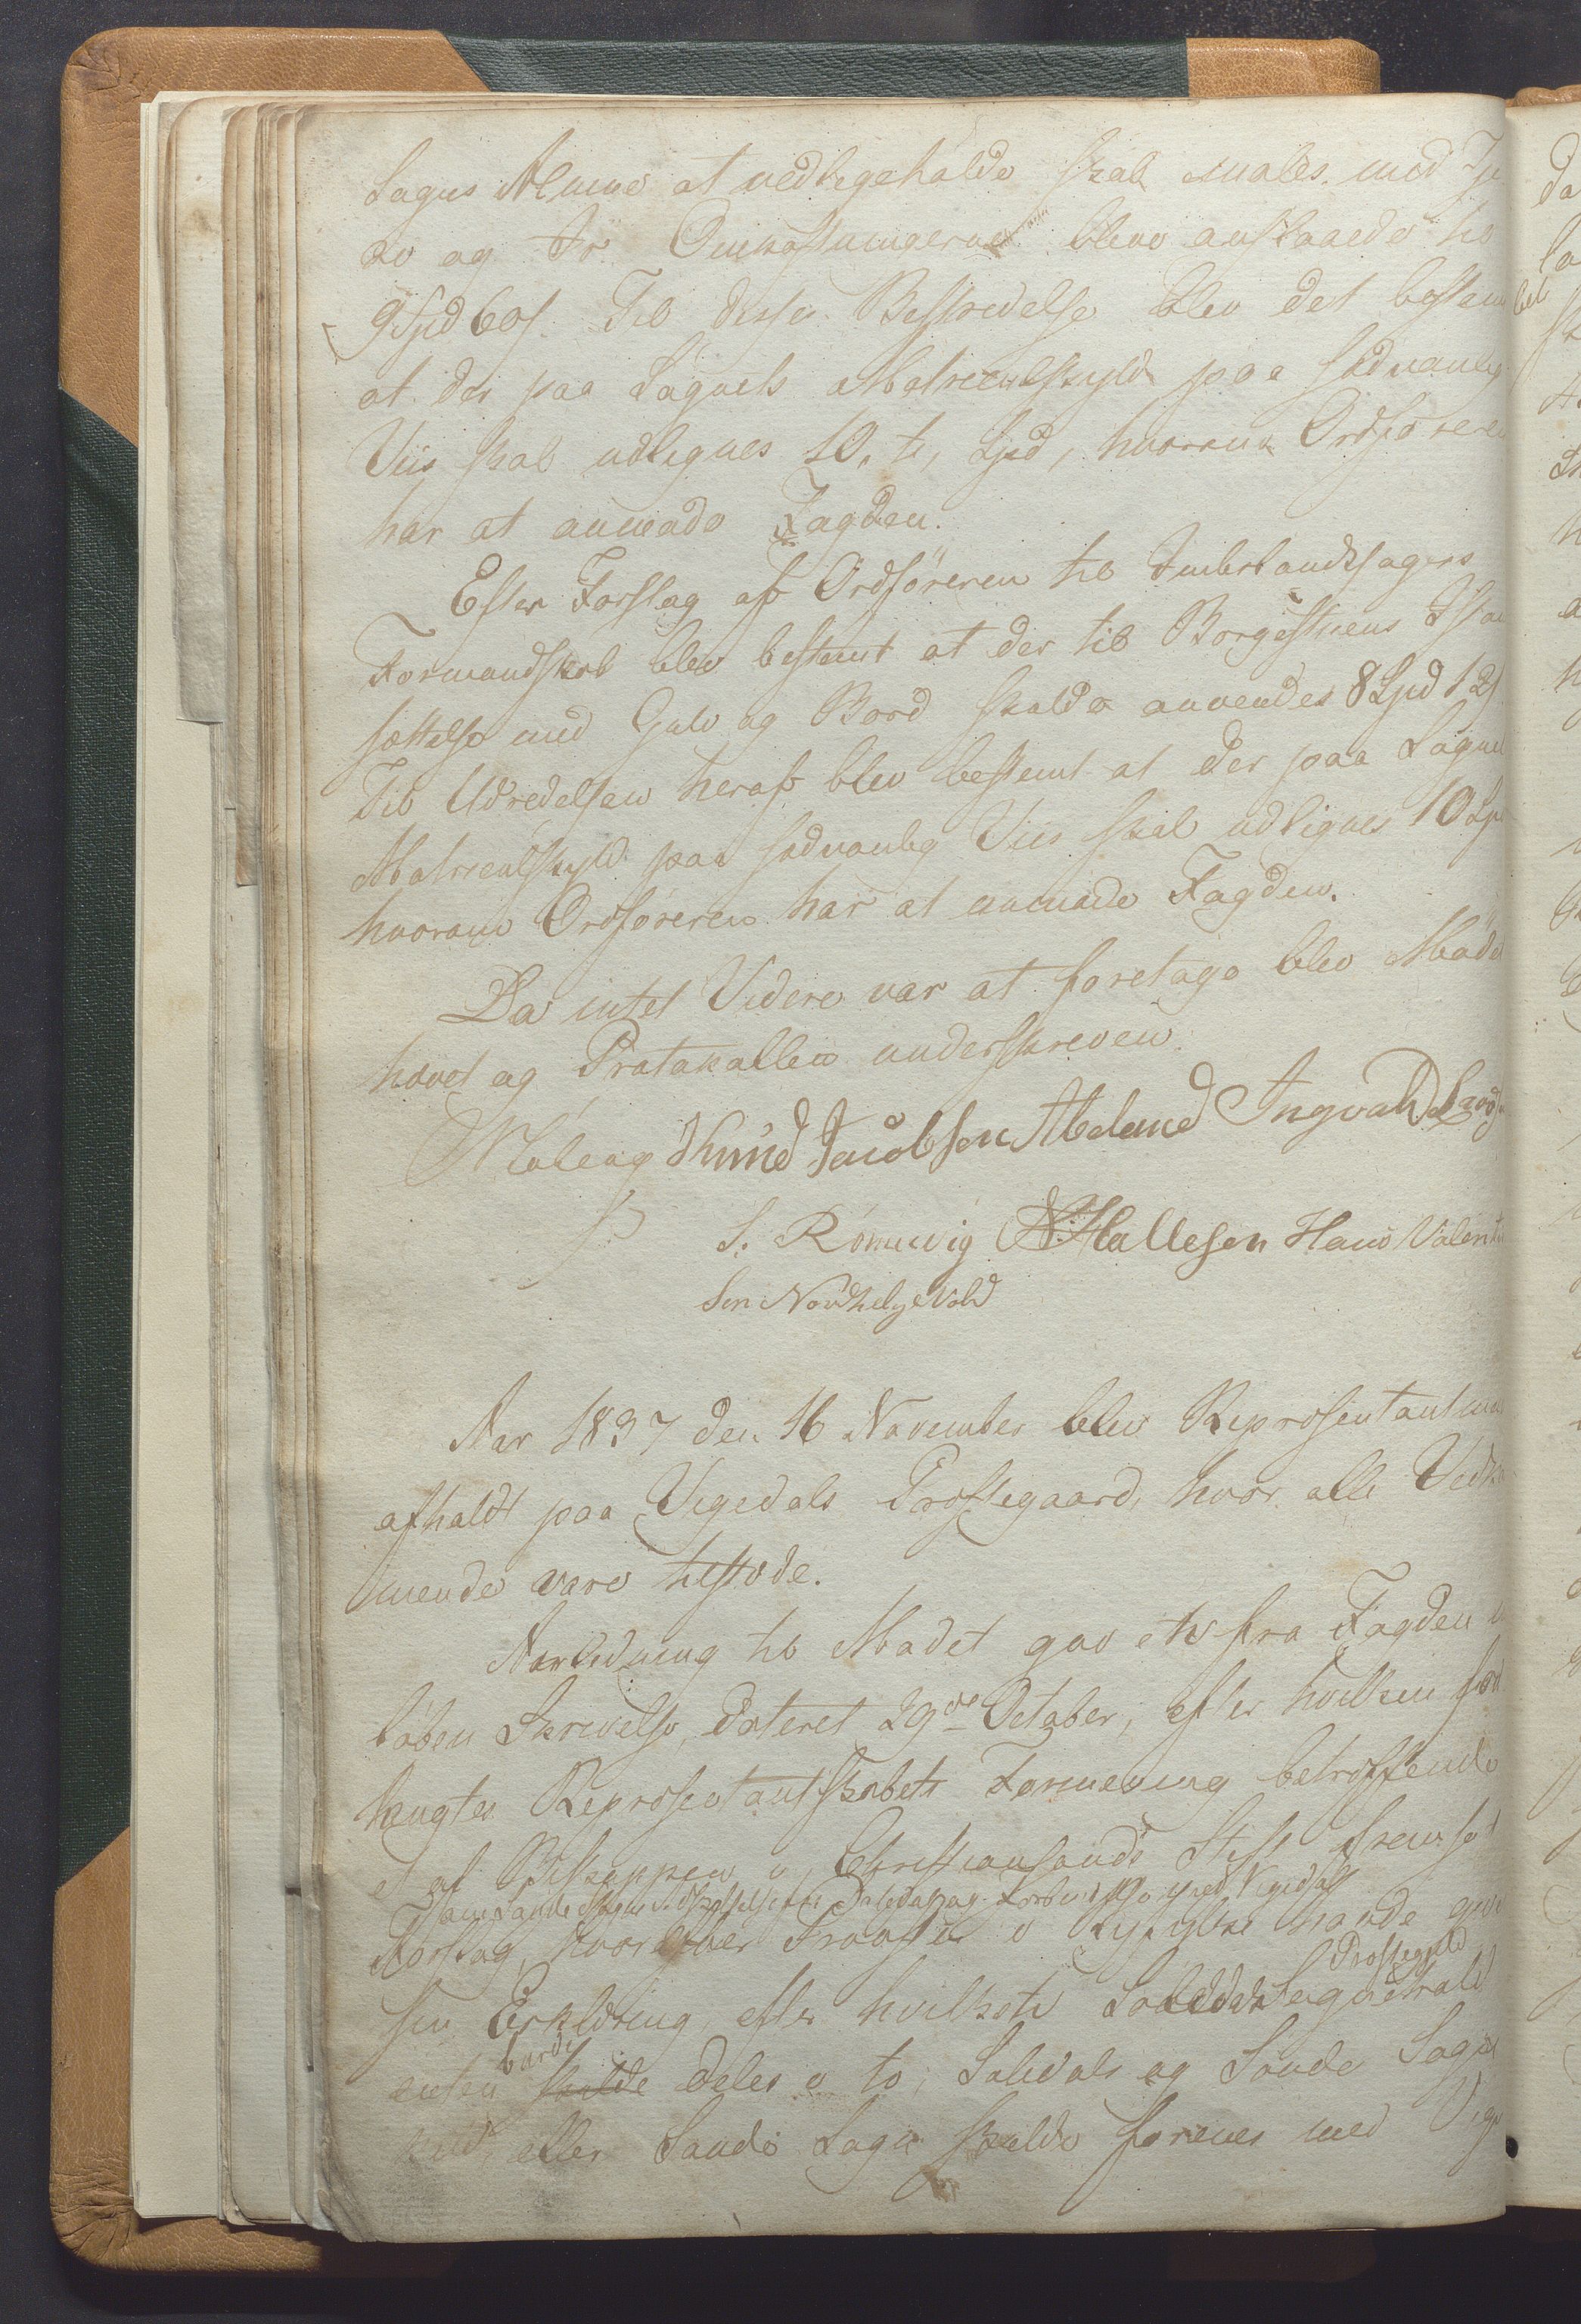 Sagns Almue at vedligeholde skal males med Tjæ
re og Omkostningerne bleve anslaaede til
9 Spd 60 s. Til disses Bestridelse blev det bestem
at der paa Sognets Matriculskyld paa sædvanlig
Viis skal udlignes 10, ti, Spd, hvorom Ordføreren
har at anmode Fogden.
Efter Forslag af Ordføreren til Imbslandssagns
Formandskab blev bestemt at der til Borgestuens Istan
sættelse med Gulv og Bord skulde anvendes 8 Spd 12 s.
Til Udredelsen heraf blev bestemt at der paa Sognets
Matriculskyld paa sædvanlig Viis skal udlignes 10 Spd
hvorom Ordføreren har at anmode Fogden.
Da intet Videre var at foretage blev Mødet
hævet og Protokollen underskreven.
Knud Jacobsen Abeland Ingvald
S. Rønnevig N. Hallesen Hans Valentin
sen Nordhelgevold
Aar 1837 den 16 November blev Representantmø
afholdt paa Vigedals Præstegaard, hvor alle Vedkom
mende vare tilstæde.
Anledning til Mødet gav en fra Fogden ind
løben Skrivelse, dateret 29de October, efter hvilken for
langtes Representantskabets Formening betræffende
et af Biskoppen i Christiansands Stift fremsat
Forslag, hvorover Provsten i Ryfylke havde given
sin Erklæring, efter hvilken
Præstegjeld
enten burde skulde deles i to, Suledals og Sands Sogne
kald, eller Sands Sogn skulde forenes med Vige